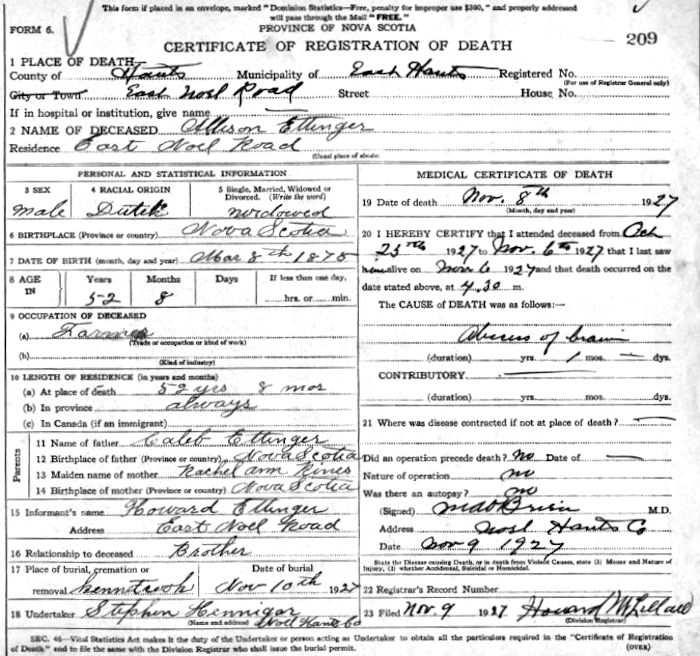 This form if placed in an envelope, marked "Dominion Statistics—Free, penalty for improper use $300," and properly addressed
will pass through the Mail "FREE."
FORM 6.
PROVINCE OF NOVA SCOTIA
CERTIFICATE OF REGISTRATION OF DEATH
209
1 PLACE OF DEATH—
County of Hants Municipality of East Hants Registered No.
(For use of Registrar General only)
City or Town East Noel Road Street House No.
If in hospital or institution, give name
2 NAME OF DECEASED Allison Ettinger
Residence East Noel Road
(Usual place of abode)
PERSONAL AND STATISTICAL INFORMATION
3 SEX 4 RACIAL ORIGIN 5 Single, Married, Widowed or Divorced. (Write the word)
Male Dutch Widowed
6 BIRTHPLACE (Province or country) Nova Scotia
7 DATE OF BIRTH (month, day and year) Mar 8th 1875
8 AGE IN Years Months Days If less than one day,
52 8 hrs. or min.
9 OCCUPATION OF DECEASED
(a) Farmer
(Trade or occupation or kind of work)
(b)
(Kind of industry)
10 LENGTH OF RESIDENCE (in years and months)
(a) At place of death 52 yrs 8 mos
(b) In province always
(c) In Canada (if an immigrant)
Parents
11 Name of father Caleb Ettinger
12 Birthplace of father (Province or country) Nova Scotia
13 Maiden name of mother Rachel Ann
14 Birthplace of mother (Province or country) Nova Scotia
15 Informant's name Howard Ettinger
Address East Noel Road
16 Relationship to deceased Brother
17 Place of burial, cremation or removal Kennetcook Date of burial Nov 10th 1927
18 Undertaker Stephen Hennigar
(Name and address) Noel Hants Co
MEDICAL CERTIFICATE OF DEATH
19 Date of death Nov. 8th 1927
(Month, day and year)
20 I HEREBY CERTIFY that I attended deceased from Oct
23rd 1927 to Nov. 6th 1927 that I last saw
him alive on Nov 6 1927 and that death occurred on
date stated above, at 4.30 m.
The CAUSE of DEATH was as follows:—
Abscess of brain
(duration) yrs. 1 mos. — dys.
CONTRIBUTORY
(duration) yrs. mos. dys.
21 Where was disease contracted if not at place of death?
Did an operation precede death? no Date of
Nature of operation no
Was there an autopsy? no
(Signed) M.D.
Address Noel Hants Co
Date Nov 9 1927
State the Disease causing Death, or in death from Violent Causes, state (1) Means and Nature of Injury, (2) whether Accidental, Suicidal or Homicidal.
22 Registrar's Record Number
23 Filed Nov. 9 1927 Howard
(Division Registrar)
SEC. 46—Vital Statistics Act makes it the duty of the Undertaker or person acting as Undertaker to obtain all the particulars required in the "Certificate of Registration
of Death" and to file the same with the Division Registrar who shall issue the burial permit.
(OVER)